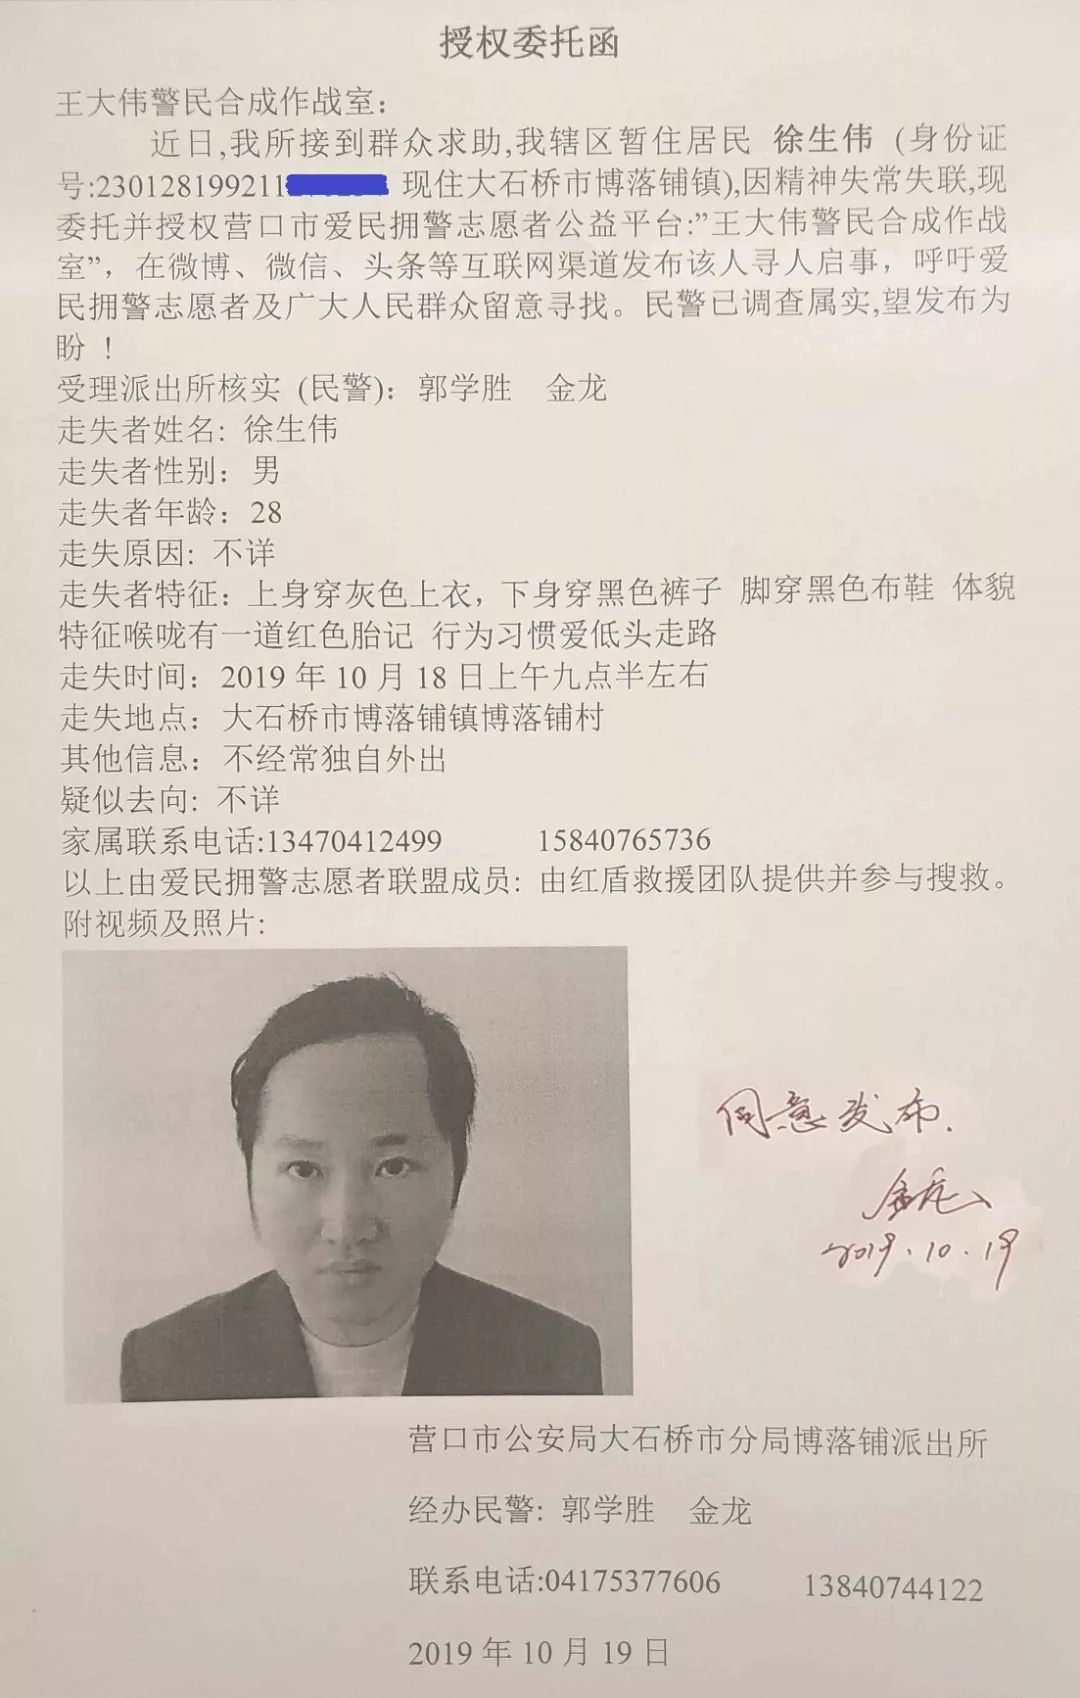 授权委托函
王大伟警民合成作战室：
近日,我所接到群众求助,我辖区暂住居民 徐生伟 (身份证
号:230128199211 现住大石桥市博落铺镇),因精神失常失联,现
委托并授权营口市爱民拥警志愿者公益平台:"王大伟警民合成作战
室"，在微博、微信、头条等互联网渠道发布该人寻人启事，呼吁爱
民拥警志愿者及广大人民群众留意寻找。民警已调查属实,望发布为
盼 ！
受理派出所核实 (民警)：郭学胜 金龙
走失者姓名: 徐生伟
走失者性别：男
走失者年龄：28
走失原因: 不详
走失者特征：上身穿灰色上衣，下身穿黑色裤子 脚穿黑色布鞋 体貌
特征喉咙有一道红色胎记 行为习惯爱低头走路
走失时间：2019 年 10 月 18 日上午九点半左右
走失地点：大石桥市博落铺镇博落铺村
其他信息：不经常独自外出
疑似去向: 不详
家属联系电话:13470412499 15840765736
以上由爱民拥警志愿者联盟成员: 由红盾救援团队提供并参与搜救。
附视频及照片:
同意发布.
金龙
2019.10.19
营口市公安局大石桥市分局博落铺派出所
经办民警: 郭学胜 金龙
联系电话:04175377606 13840744122
2019 年 10 月 19 日